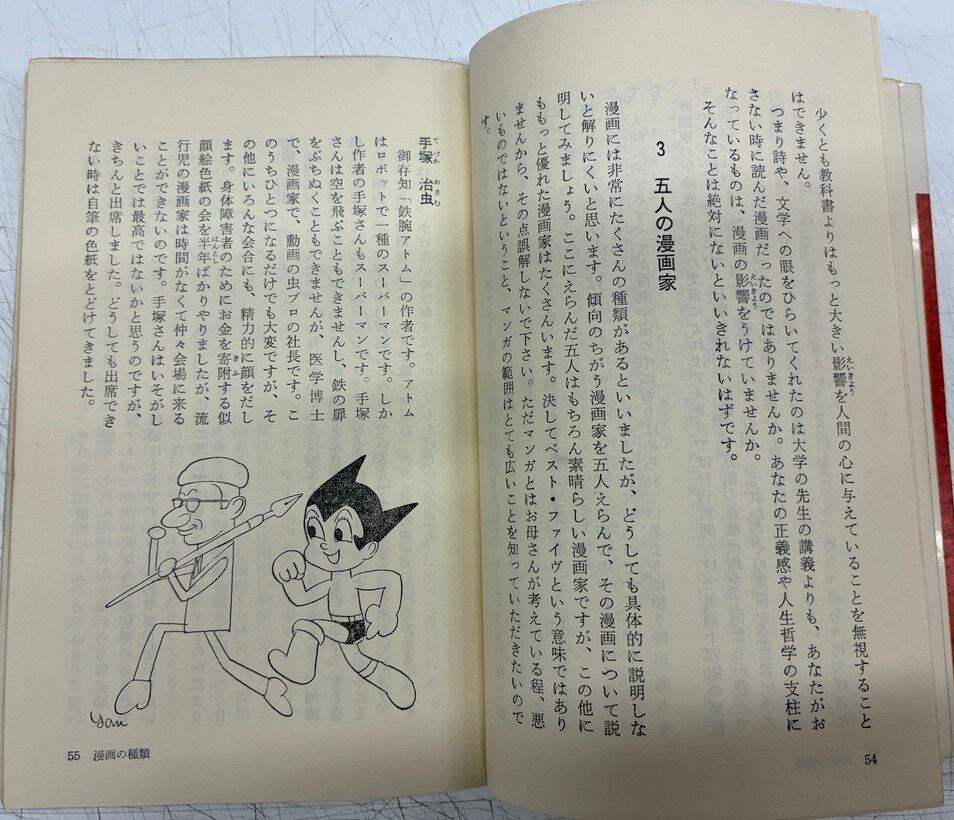 少くとも教科書よりはもっと大きい影響を人間の心に与えていることを無視すること
はできません。
つまり詩や、文学への眼をひらいてくれたのは大学の先生の講義よりも、あなたがお
さない時に読んだ漫画だったのではありませんか。あなたの正義感や人生哲学の支柱に
なっているものは、漫画の影響をうけていませんか。
そんなことは絶対にないといいきれないはずです。
3 五人の漫画家
漫画には非常にたくさんの種類があるといいましたが、どうしても具体的に説明しな
いと解りにくいと思います。傾向のちがう漫画家を五人えらんで、その漫画について説
明してみましょう。ここにえらんだ五人はもちろん素晴らしい漫画家ですが、この他に
ももっと優れた漫画家はたくさんいます。決してベスト・ファイヴという意味ではあり
ませんから、その点誤解しないで下さい。ただマンガとはお母さんが考えている程、悪
いものではないということ、マンガの範囲はとても広いことを知っていただきたいので
す。
54
手塚 治虫
御存知「鉄腕アトム」の作者です。アトム
はロボットで一種のスーパーマンです。しか
し作者の手塚さんもスーパーマンです。手塚
さんは空を飛ぶこともできませんし、鉄の扉
をぶちぬくこともできませんが、医学博士
で、漫画家で、動画の虫プロの社長です。こ
のうちひとつになるだけでも大変ですが、そ
の他にいろんな会合にも、精力的に顔をだし
ます。身体障害者のためにお金を寄附する似
顔絵色紙の会を半年ばかりやりましたが、流
行児の漫画家は時間がなくて仲々会場に来る
ことができないのです。手塚さんはいそがし
いことでは最高ではないかと思うのですが、
きちんと出席しました。どうしても出席でき
ない時は自筆の色紙をとどけてきました。
Yanu
55 漫画の種類